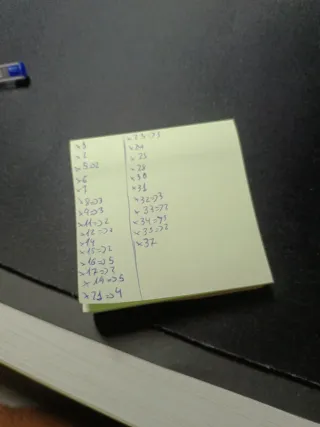 x 1
x 2
x 5=>2
x 6
x 7
x 8=>3
x 9=>3
x 11=>2
x 12=>1
x 14
x 15=>2
x 16=>5
x 17=>2
x 19=>5
x 21=>4
x 23=>3
x 28
x 30
x 31
x 32=>3
x 33=>2
x 34=>1
x 35=>2
x 37